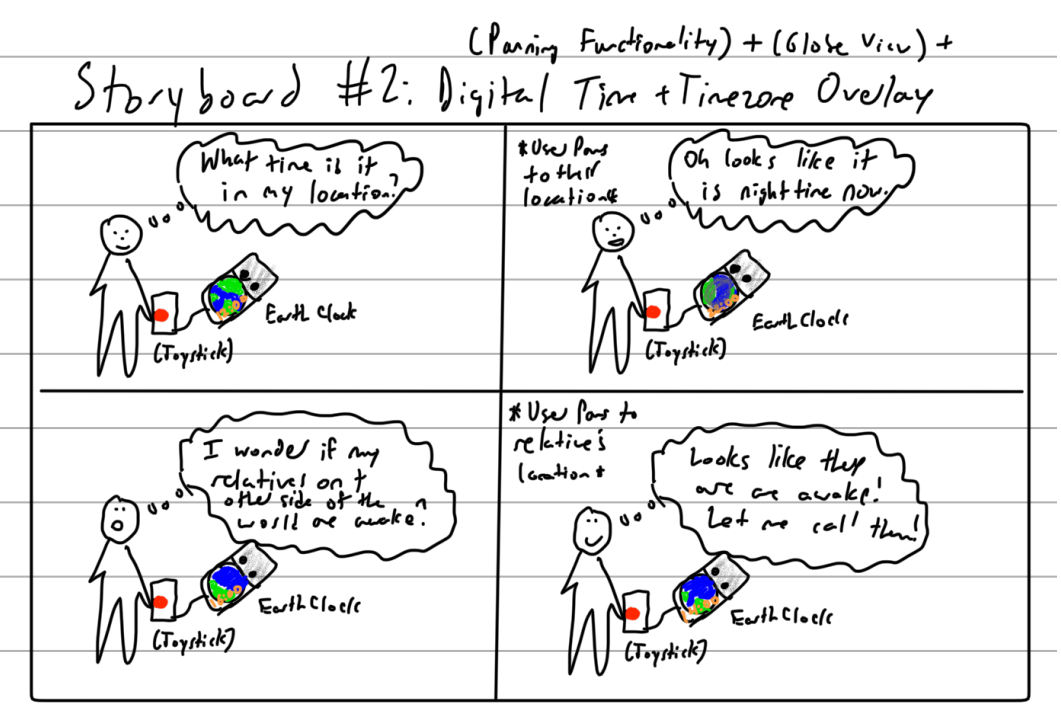 (Panning Functionality) + (Globe View) +
Storyboard #2: Digital Time + Timezone Overlay
What time is it
in my location?
Earth Clock
(Joystick)
*User Pans
to their
location*
Oh looks like it
is nighttime now.
Earth Clock
(Joystick)
I wonder if my
relatives on t
other side of the
world are awake?
Earth Clock
(Joystick)
*User Pans to
relative's
location*
Looks like they
are are awake!
Let me call them!
Earth Clock
(Joystick)